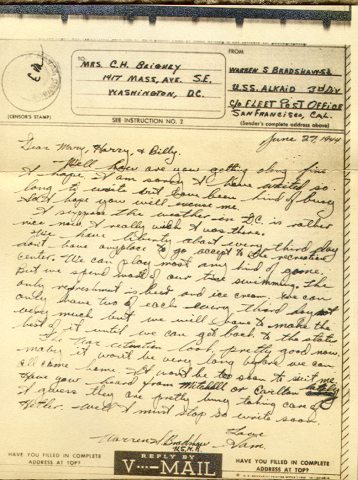 TO:
FROM
MRS. C.H. BEIGHEY
1417 MASS. AVE. S.E.
WASHINGTON, D.C.
WARREN S BRADSHAW
U.S.S. ALKAID 3rd DIV
C/O FLEET POST OFFICE
SAN FRANCISCO, CAL.
(CENSOR'S STAMP)
SEE INSTRUCTION NO. 2
(Sender's complete address above)
June 27, 1944
Dear Mary, Harry, & Billy.
Well how are you getting along fine
I hope. I am sorry I have waited so
long to write but have been kind of busy
so I hope you will excuse me.
I suppose the weather in D.C. is rather
nice now I really wish I was there.
We have liberty about every third day
don't have anyplace to go accept to the recreation
center. We can play most any kind of game.
But we spend most of our time swimming. The
only refreshment is beer and ice cream. We can
only have two of each every third day not
very much but we will have to make the
best of it until we can get back to the states.
The war situation looks pretty good now.
maby it won't be very long before we can
all come home. It won't be too soon to suit me.
Have you heard from Mitchell or Carlton lately
I guess they are pretty busy taking care of
Hitler. Well I must stop so write soon.
Love
Sam
Warren S Bradshaw
U.S.N.R.
HAVE YOU FILLED IN COMPLETE
ADDRESS AT TOP?
REPLY BY
V···—MAIL
HAVE YOU FILLED IN COMPLETE
ADDRESS AT TOP?